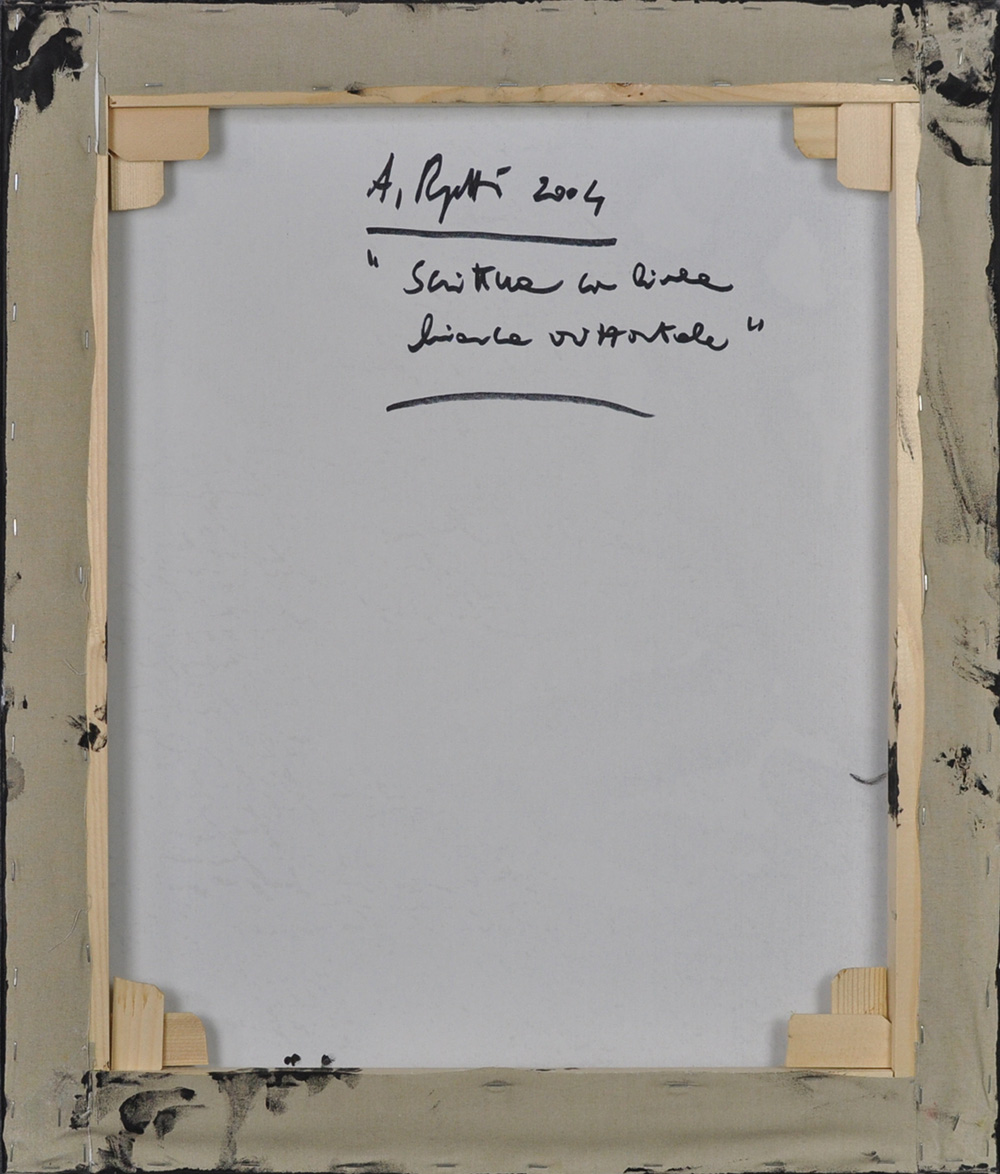 A. Raffi 2004
" Scrittura con linea
bianca orizzontale "